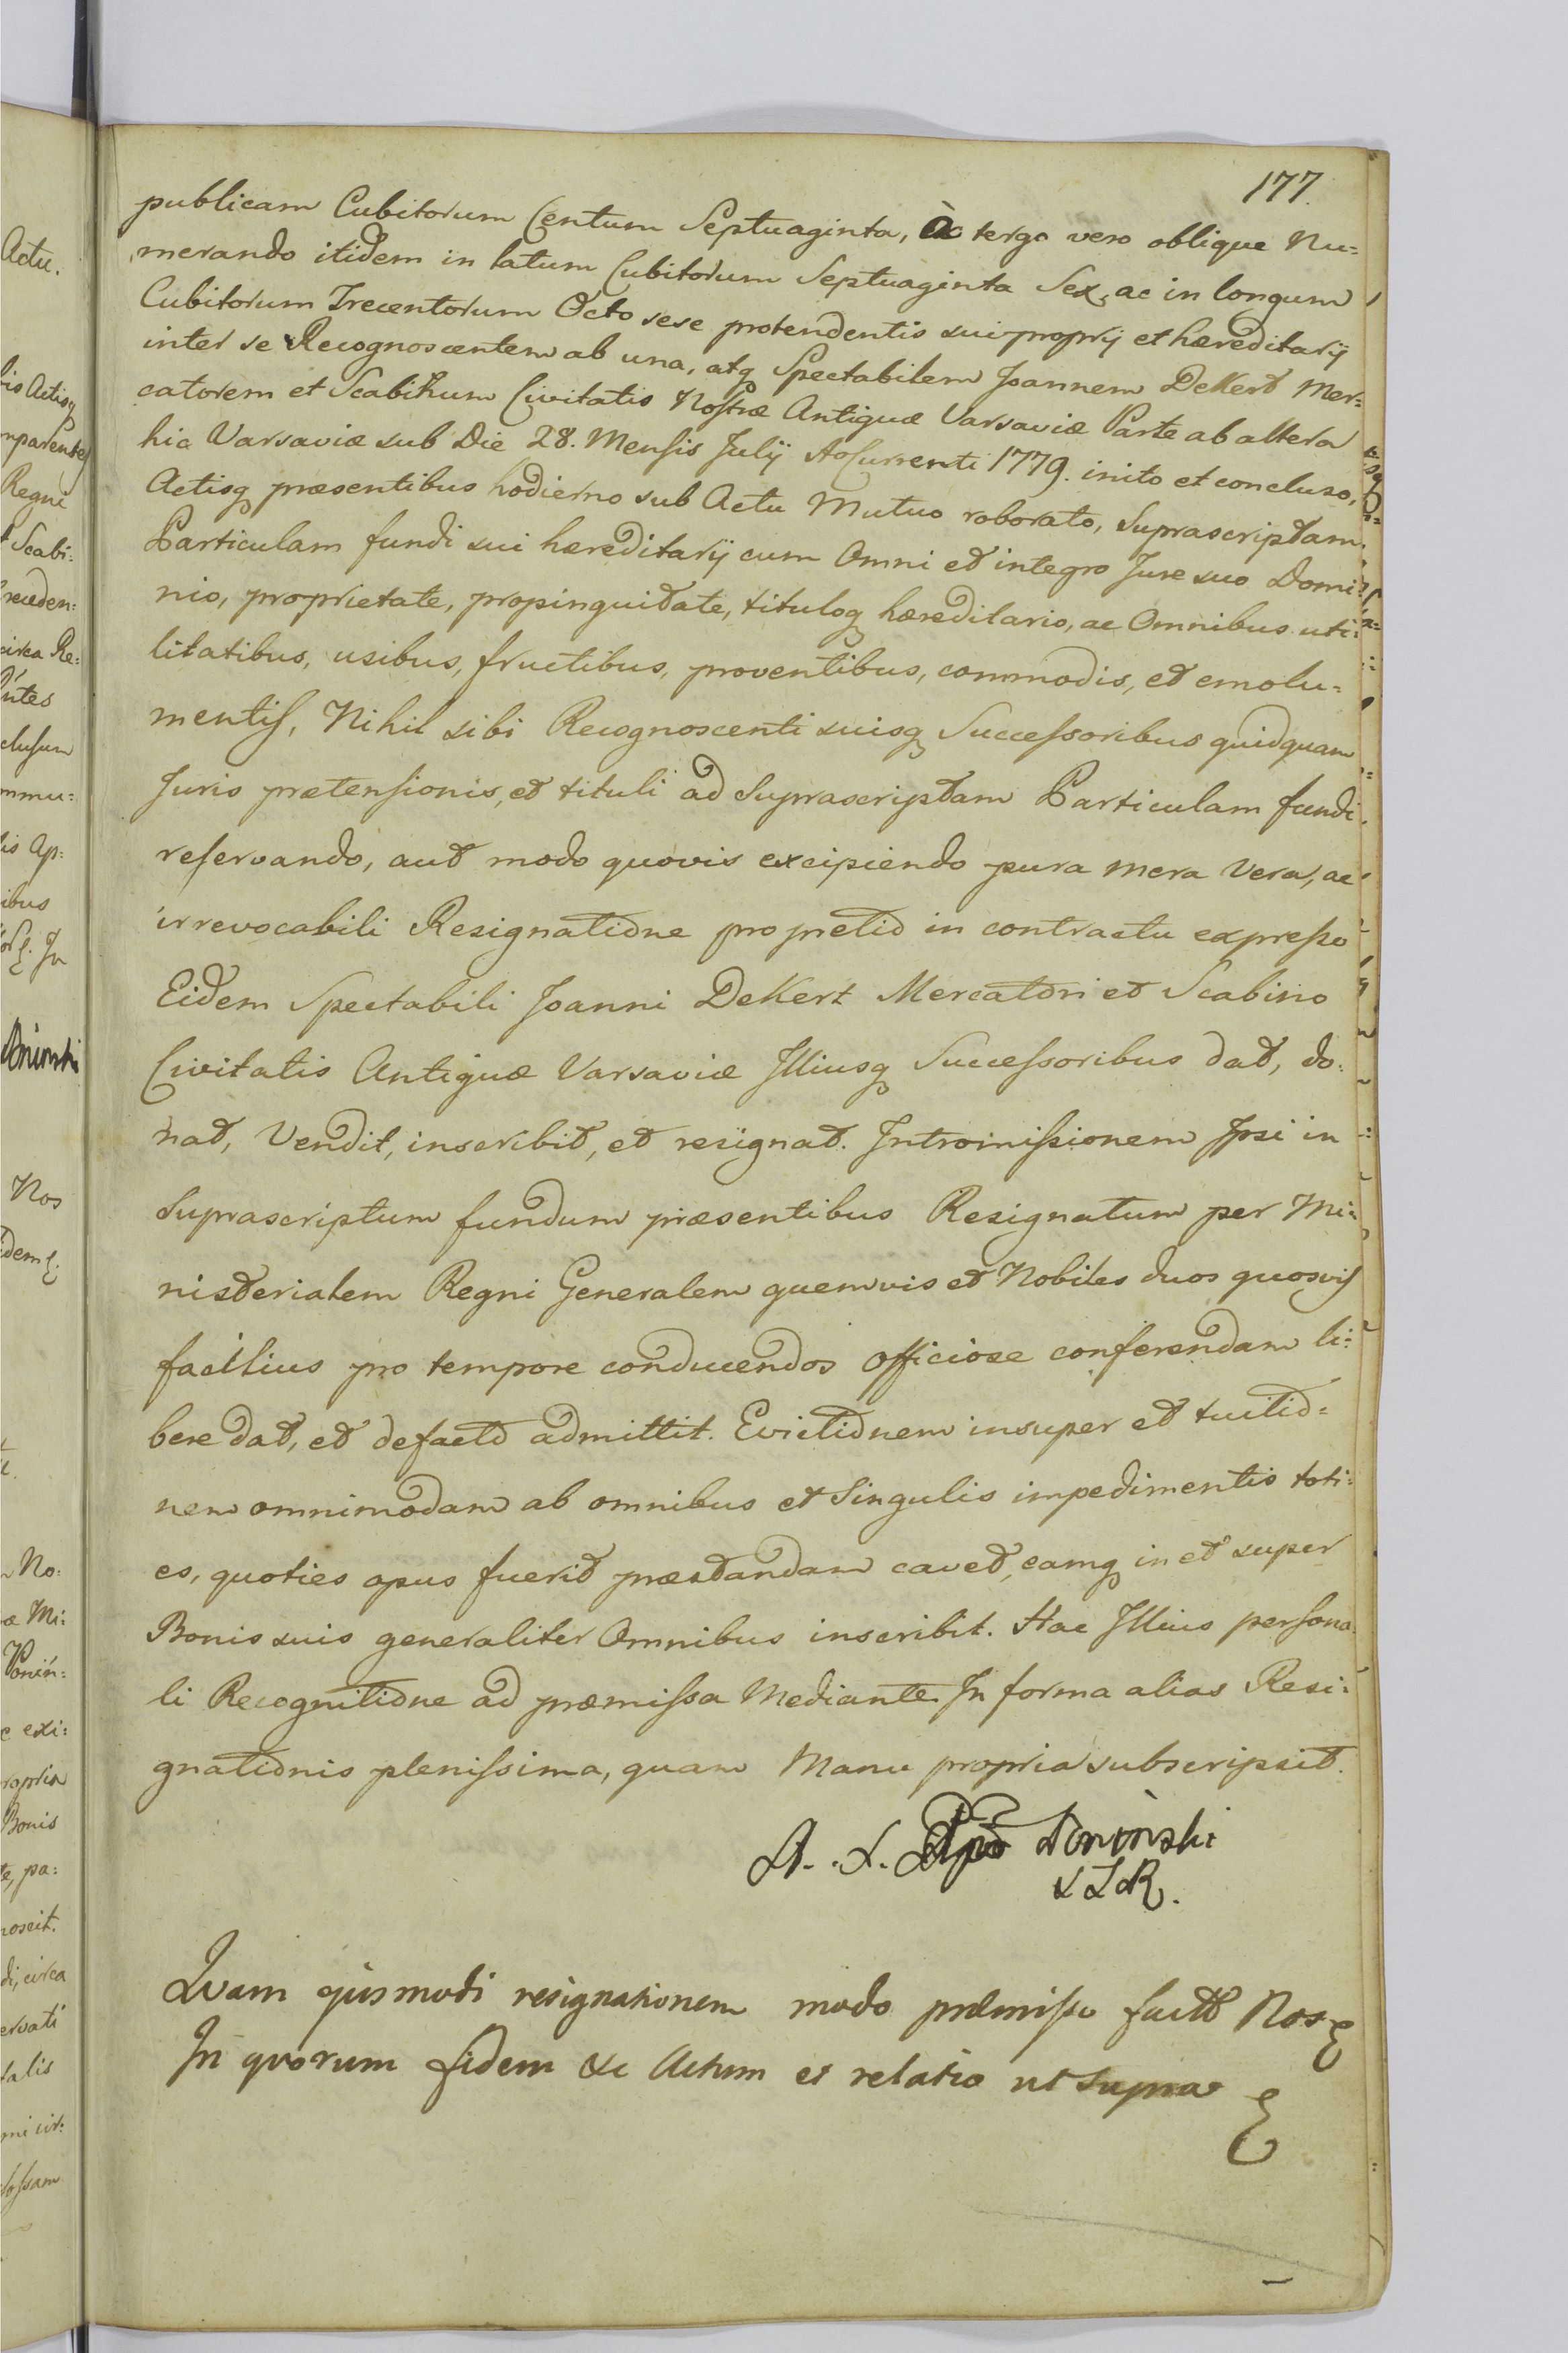 177.
publicam Cubitorum Centum Septuaginta, à tergo vero oblique Nu=
merando itidem in latum Cubitorum Septuaginta Sex, ac in longum
Cubitorum Trecentorum Octo sese protendentis sui proprij et hæreditarij
inter se Recognoscentem ab una, atq Spectabilem Joannem DeKert Mer=
catorem et Scabinum Civitatis Nostræ Antiquæ Varsaviæ Parte ab altera
hic Varsaviæ sub Die 28. Mensis Julij Ao Currenti 1779. inito et concluso,
Actisq præsentibus hodierno sub Actu Mutuo roborato, Suprascriptam
Particulam fundi sui hæreditarij cum Omni et integro Jure suo Domi=
nio, proprietate, propinquitate, tituloq hæreditario, ac Omnibus uti=
litatibus, usibus, fructibus, proventibus, commodis, et emolu=
mentis, Nihil sibi Recognoscenti suisq Successoribus quidquam
Juris prætensionis, et tituli ad Suprascriptam Particulam fundi
reservando, aut modo quovis excipiendo pura mera Vera, ac
irrevocabili Resignatione pro pretio in contractu expresso
Eidem Spectabili Joanni DeKert Mercatori et Scabino
Civitatis Antiquæ Varsaviæ Illiusq Successoribus dat, do=
nat, Vendit, inscribit, et resignat. Intromissionem Ipsi in
Suprascriptum fundum præsentibus Resignatum per Mi=
nisterialem Regni Generalem quemvis et Nobiles duos quosvis
facilius pro tempore conducendos officiose conferendam li=
bere dat, et defacto admittit. Evictionem insuper et tuitio=
nem omnimodam ab omnibus et Singulis impedimentis toti=
es, quoties opus fuerit præstandam cavet, eamq in et super
Bonis suis generaliter Omnibus inscribit. Hac Illius persona
li Recognitione ad præmissa Mediante In forma alias Resi=
gnationis plenissima, quam Manu propria subscripsit.
A. X. Poninski
Quam ejusmodi resignationem modo præmisso factã Nos
In quorum fidem &c Actum et relatio ut supra